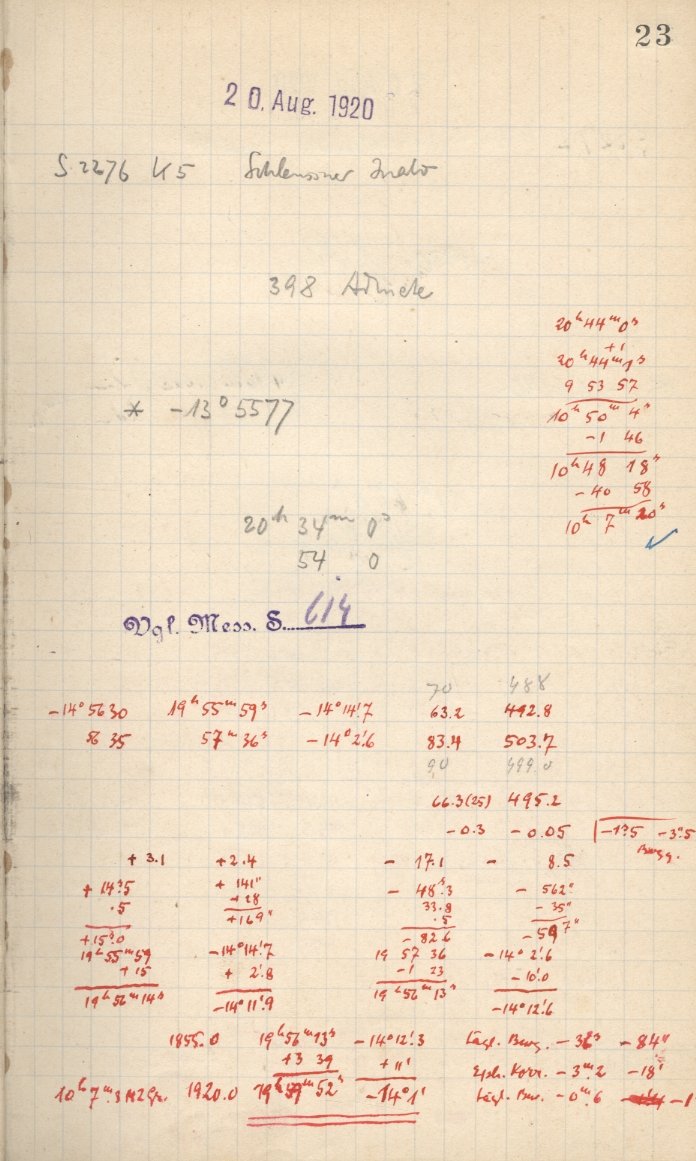 23
20. Aug. 1920
S. 2276 K5 Schleussner
398 Admete
20ʰ44ᵐ0ˢ
+1
20ʰ44ᵐ1ˢ
9 53 57
10ʰ50ᵐ4ˢ
-1 46
10ʰ48 18ˢ
-40 58
10ʰ 7ᵐ 20ˢ
* -13° 5577
20ʰ 34ᵐ 0ˢ
54 0
Vgl. Mess. S. 614
70 488
-14° 5630 19ʰ55ᵐ59ˢ -14°14!7 63.2 492.8
5635 57ᵐ36ˢ -14°2!6 83.4 503.7
90 499.0
66.3(25) 495.2
-0.3 -0.05 -1ˢ.5 -3".5
Bewg.
+3.1 +2.4 - 17.1 - 8.5
+14ˢ.5 +141" - 48ˢ.3 - 562"
.5 +28 33.8 - 35"
+169" .5
+15ˢ.0 -82.6 -597"
19ʰ55ᵐ59 -14°14!7 19 57 36 -14°2!6
+15 + 2!8 -1 23 -10!0
19ʰ56ᵐ14ˢ -14°11!9 19ʰ56ᵐ13ˢ -14°12!6
1855.0 19ʰ56ᵐ13ˢ -14°12!3 tägl. Bewg. -36ˢ -84"
+3 39 +11' Eph. Korr. -3ᵐ2 -18'
10ʰ7ᵐ.3 MZ Gr. 1920.0 19ʰ59ᵐ52ˢ -14°1' tägl. Bew. -0ᵐ.6 -1